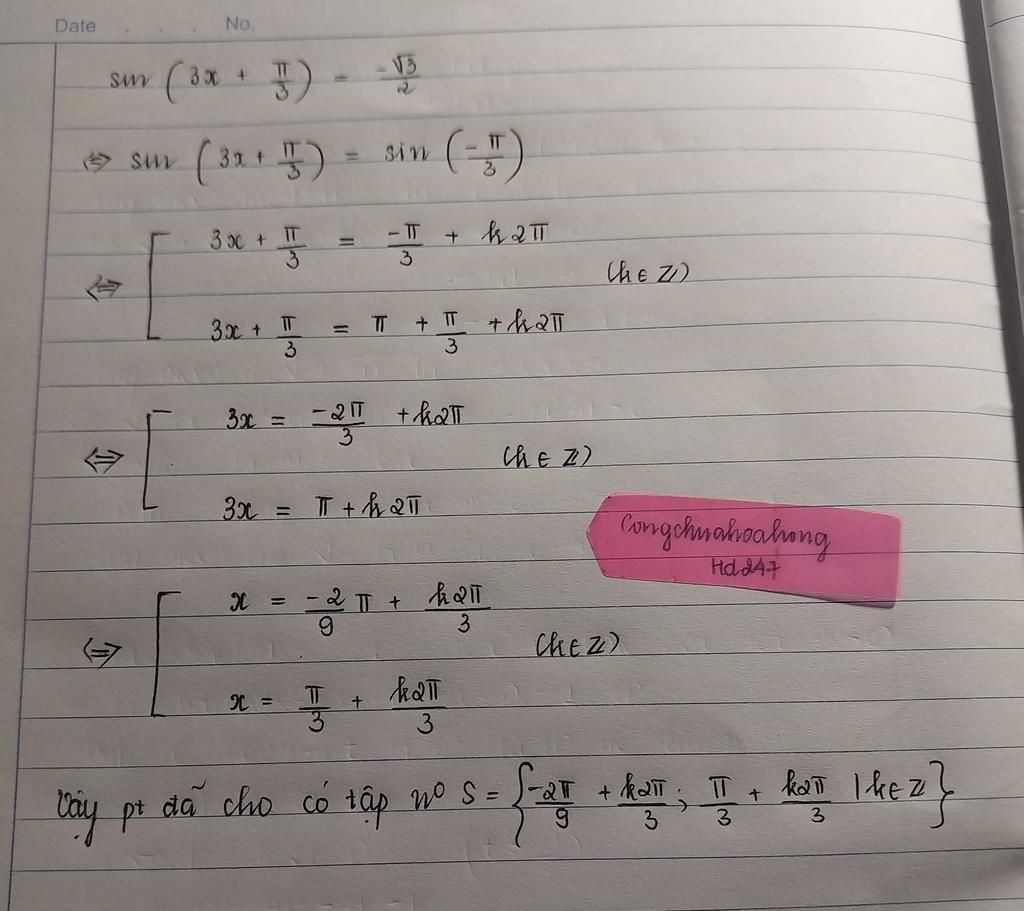 Date . . . No.
sin (3x + π/3) = -√3/2
⇔ sin (3x + π/3) = sin (-π/3)
3x + π/3 = -π/3 + k2π
⇔ [ (k ∈ Z)
3x + π/3 = π + π/3 + k2π
3x = -2π/3 + k2π
⇔ [ (k ∈ Z)
3x = π + k2π
Congchuahoahong
Hd247
x = -2/9 π + k2π/3
⇔ [ (k ∈ Z)
x = π/3 + k2π/3
Vậy pt đã cho có tập nº S = {-2π/9 + k2π/3; π/3 + k2π/3 | k ∈ Z}